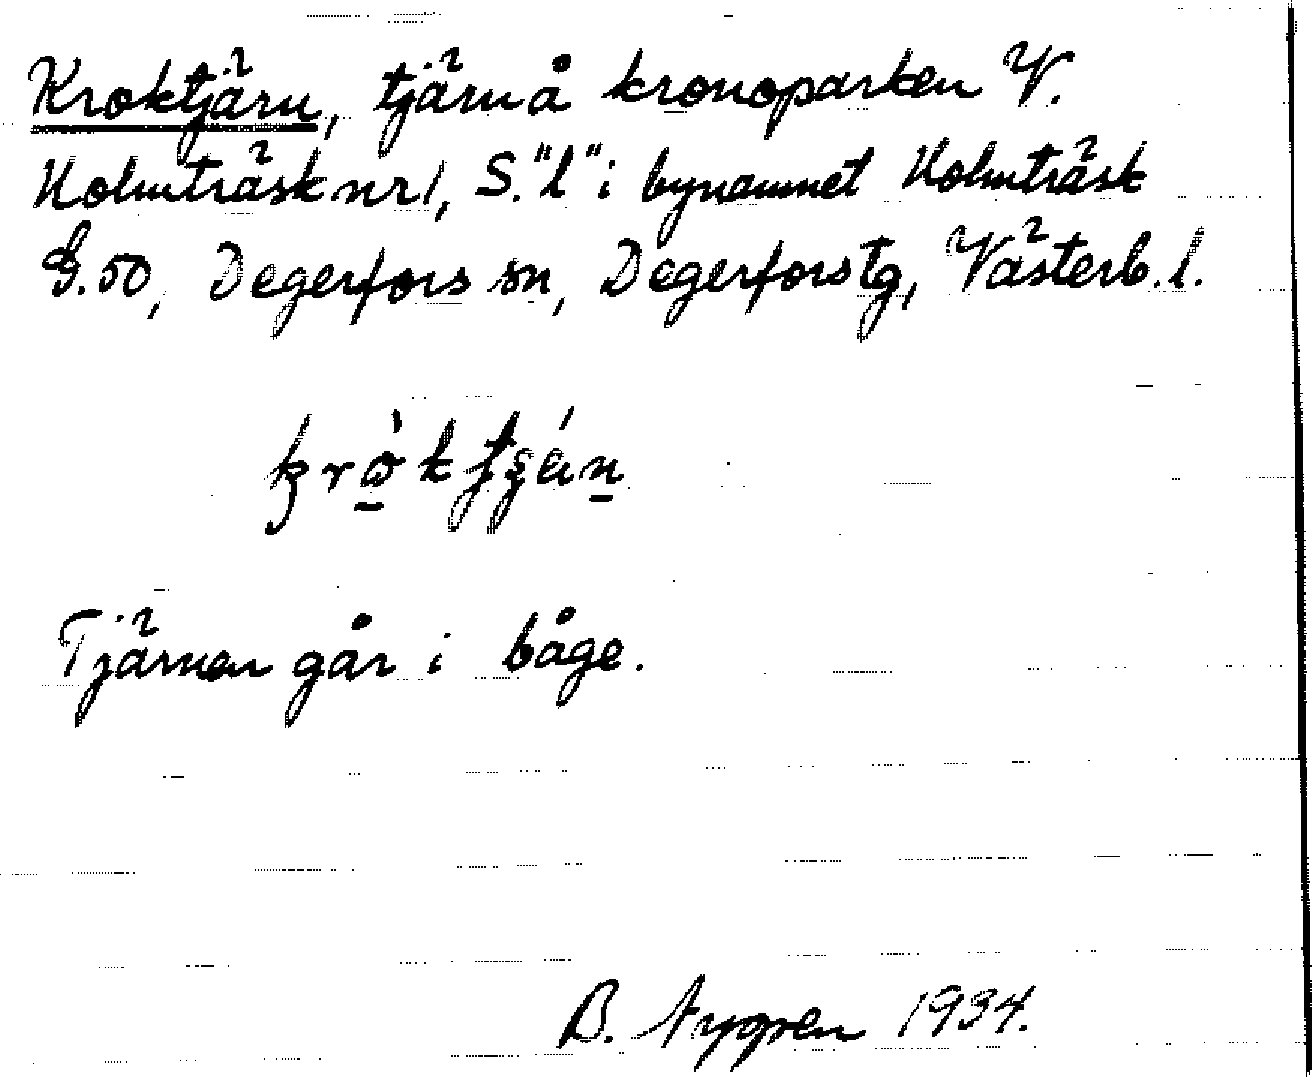 Kroktjärn, tjärn å kronoparken V.
Holmträsk nr 1, S. "l" i bynamnet Holmträsk
G.50, Degerfors sn, Degerfors tg, Västerb. l.
Tjärnen går i båge.
B. Nygren 1934.